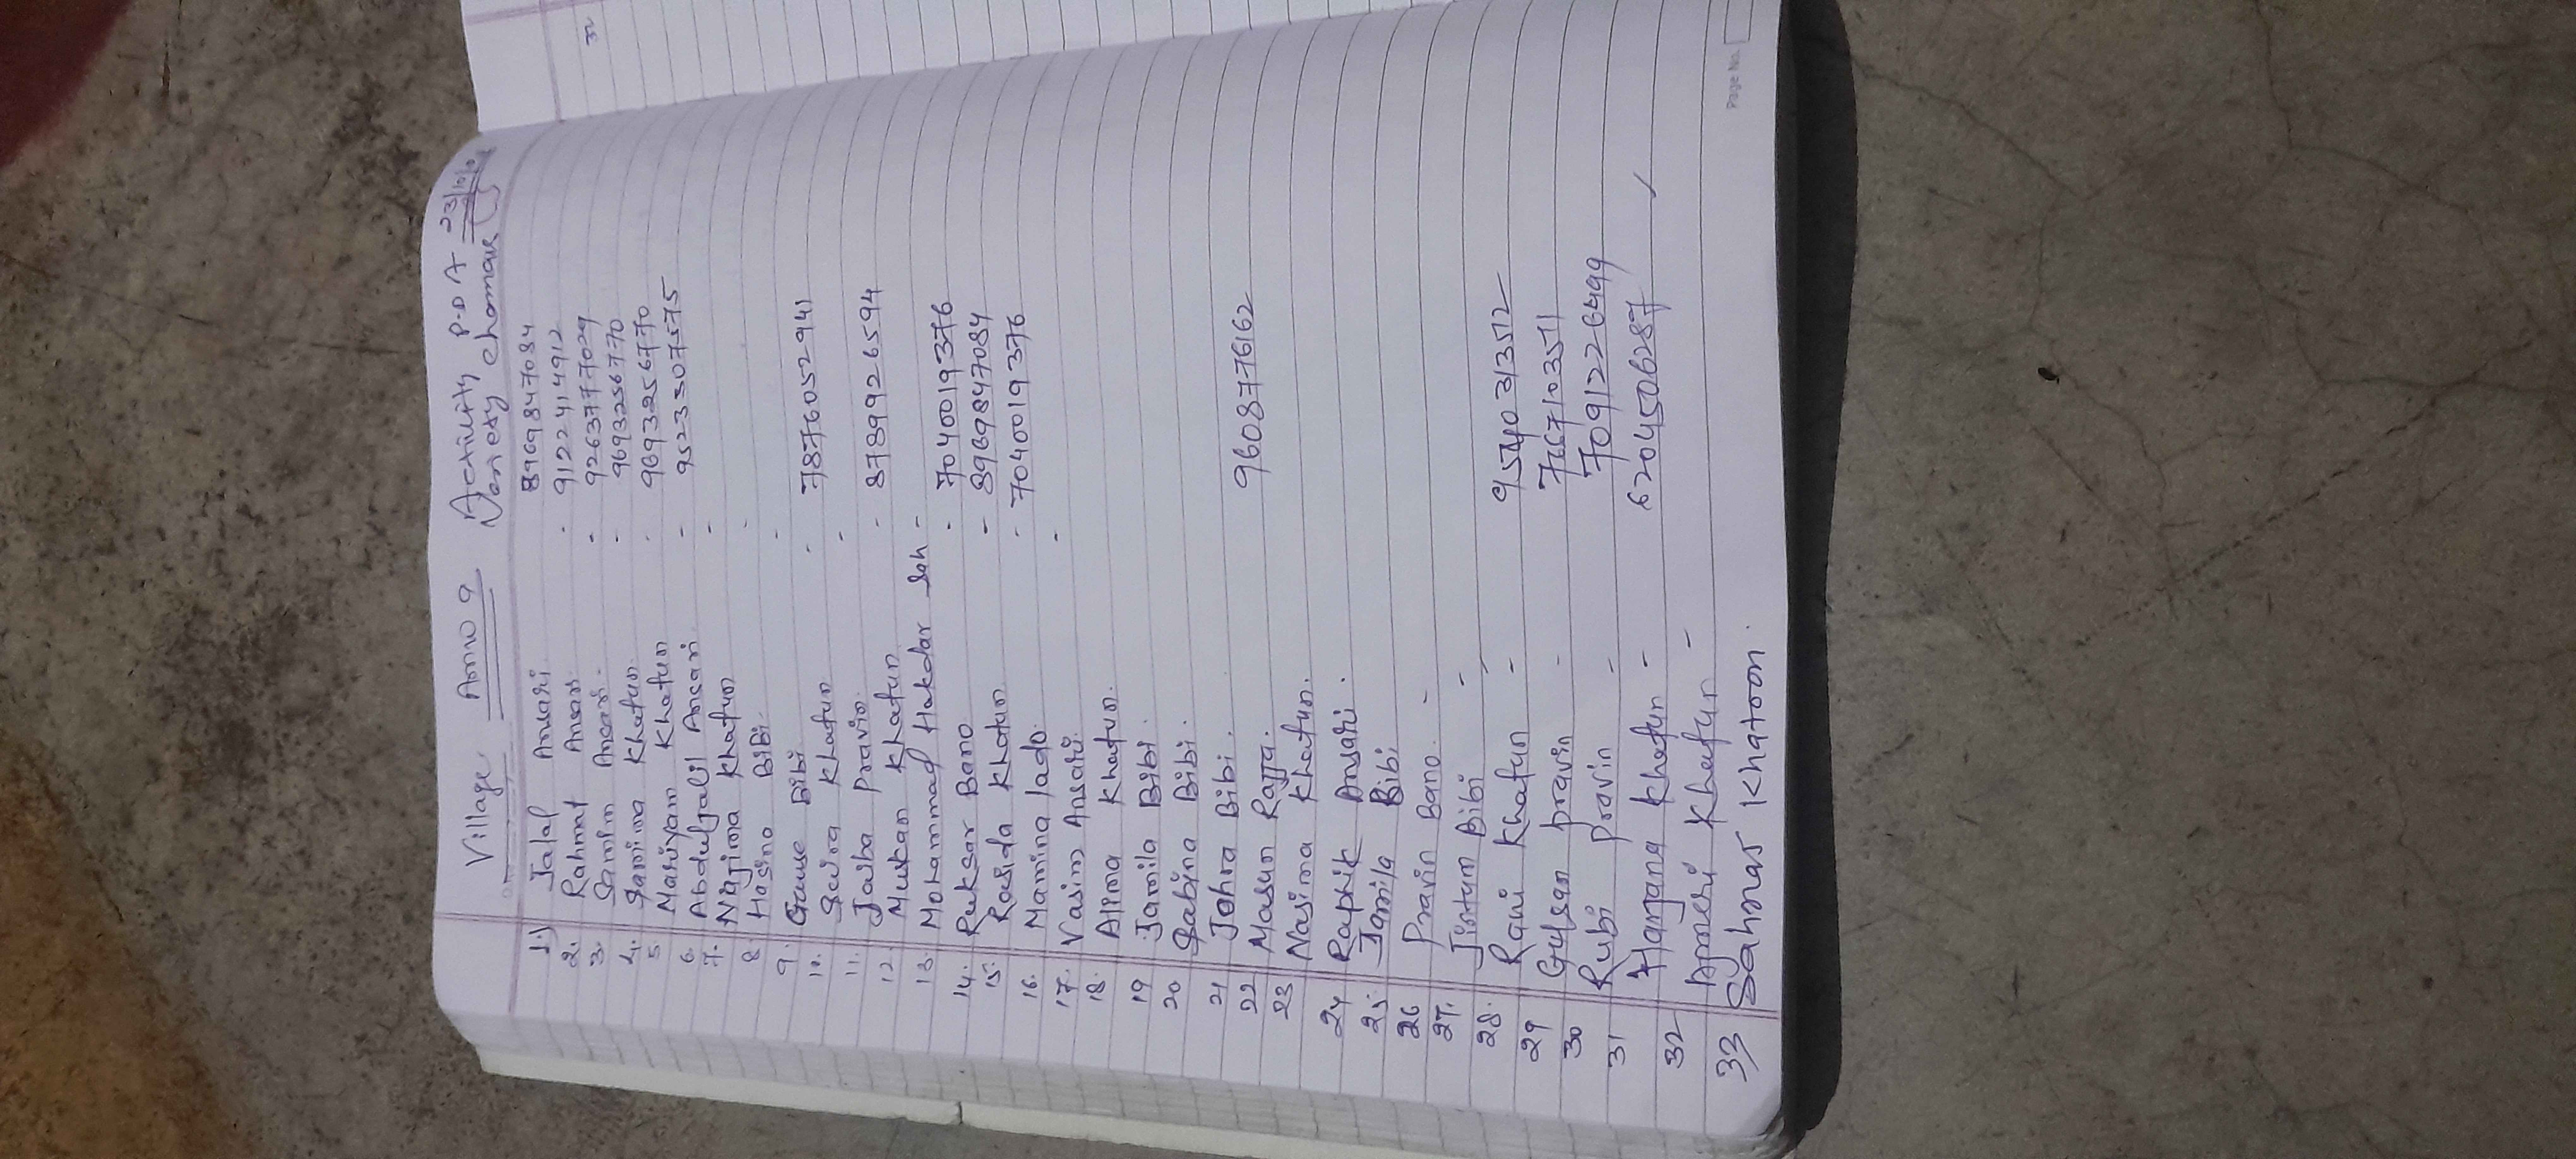 Village Amw 9 Activity P.D.A 23/10/
chomar
1. Jalal Ansari 8969847084
2. Rahmat Ansari - 9122414912
3. Samim Ansari - 9263777029
4. Samima Khatun - 9693256770
5 Mariyam Khatun - 9693256770
6. Abduljalil Ansari - 9523307575
7. Najima Khatun -
8 Hasina Bibi -
9. Gause Bibi -
10. Saira Khatun - 7876052941
11. Jaiba Pravin -
12. Muskan Khatun - 8789926594
13. Mohammad Hakdar Sah -
14. Ruksar Bano - 7040019376
15. Rasida Khatun - 8969847084
16. Mamina lado - 7040019376
17. Vasim Ansari -
18. Alima Khatun.
19 Jamila Bibi.
20 Sabina Bibi.
21 Johra Bibi.
22 Masun Rajja. 9608776162
23 Nasima Khatun.
24 Raphik Ansari.
25. Jamila Bibi
26 Pravin Bano. -
27. Jintun Bibi -
28. Rani Khatun - 9540313512
29 Gulsan pravin - 7667103551
30 Rubi pravin - 7091226499
31 Hanjana Khatun - 6204506287
32 Khatun -
33 Sahnas Khatoon.
32
Page No.